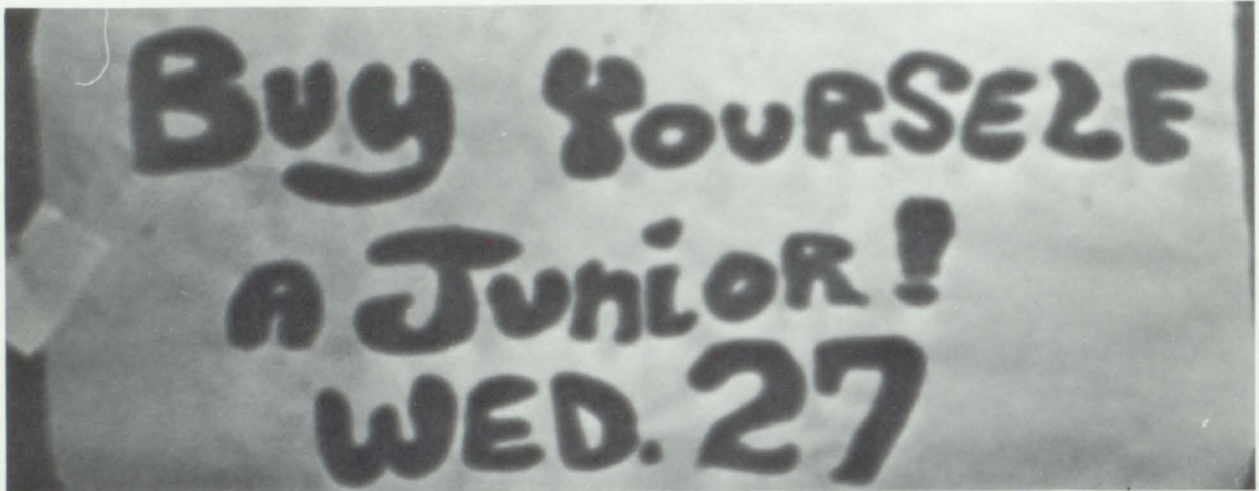 Buy YOURSELF
A Junior!
WED. 27